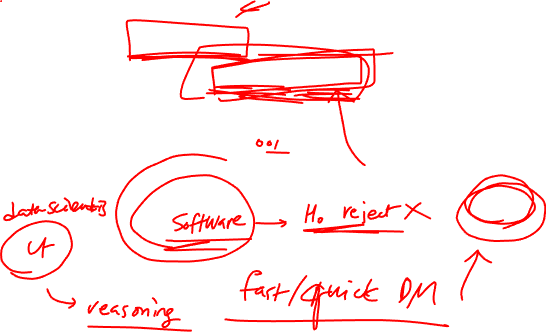 001
data scientists
Software → H₀ reject X
4
reasoning
fast/quick DM